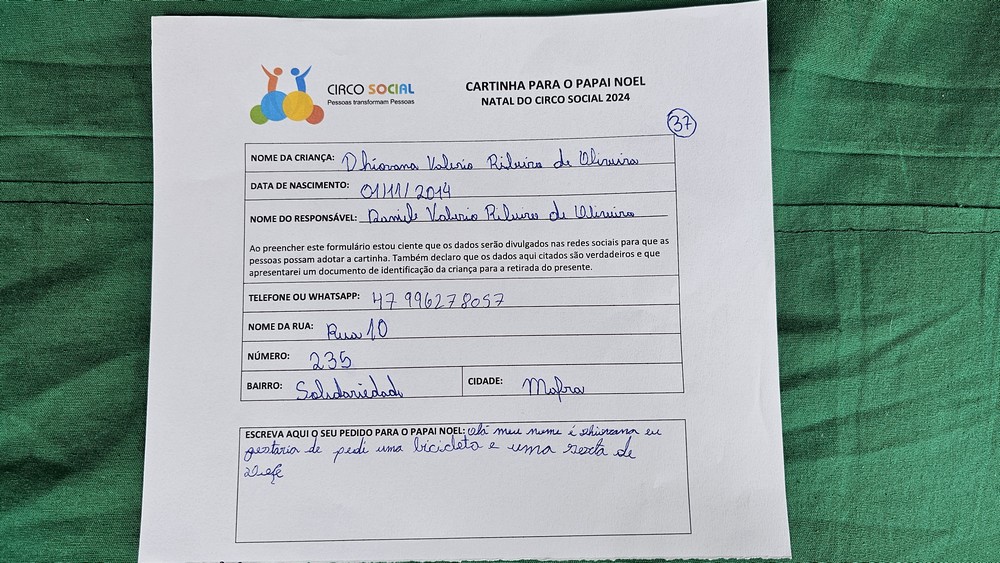 CIRCO SOCIAL
Pessoas transformam Pessoas
CARTINHA PARA O PAPAI NOEL
NATAL DO CIRCO SOCIAL 2024
37
NOME DA CRIANÇA: Dhiovana Valerio Ribeiro de Oliveira
DATA DE NASCIMENTO: 01/11/2014
NOME DO RESPONSÁVEL: Daniele Valerio Ribeiro de Oliveira
Ao preencher este formulário estou ciente que os dados serão divulgados nas redes sociais para que as
pessoas possam adotar a cartinha. Também declaro que os dados aqui citados são verdadeiros e que
apresentarei um documento de identificação da criança para a retirada do presente.
TELEFONE OU WHATSAPP: 47 996278057
NOME DA RUA: Rua 10
NÚMERO: 235
BAIRRO: Solidariedade CIDADE: Mafra
ESCREVA AQUI O SEU PEDIDO PARA O PAPAI NOEL: Olá meu nome é dhiovana eu
gostaria de pedi uma bicicleta e uma sesta de